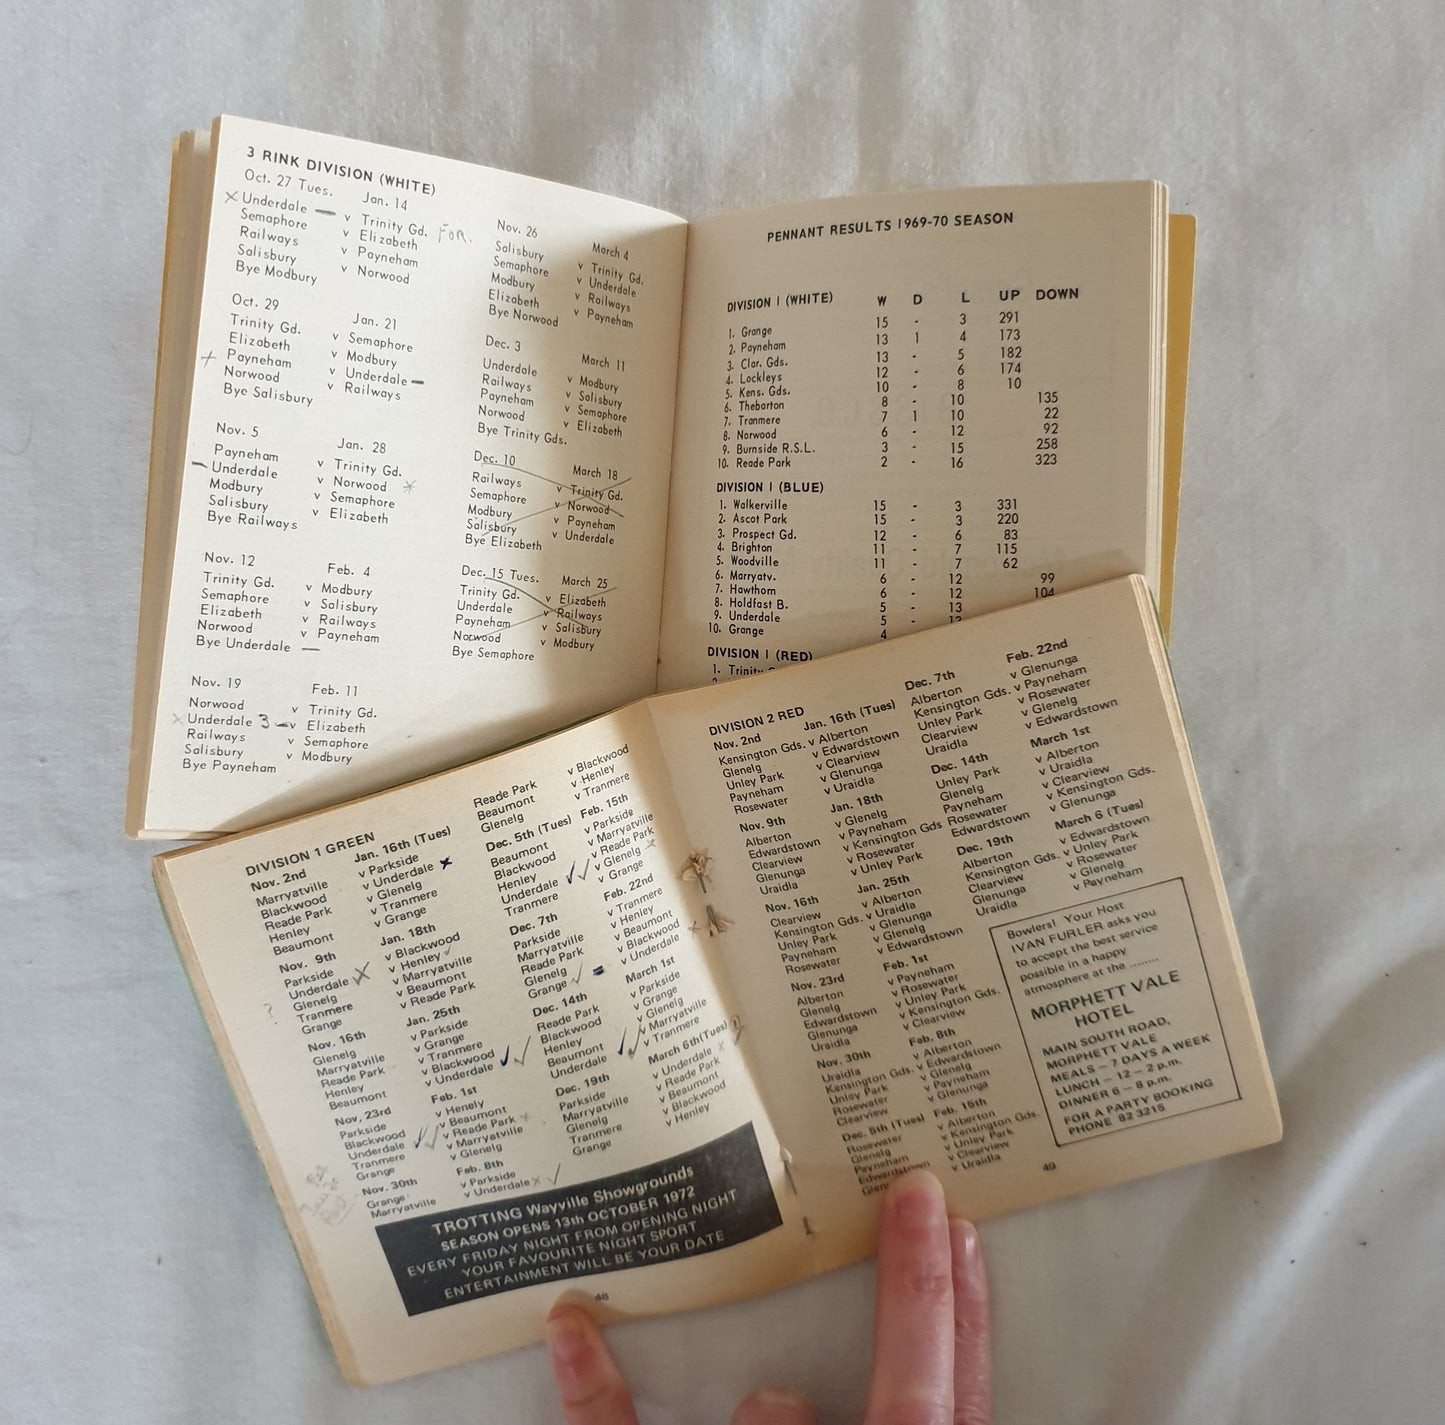 3 RINK DIVISION (WHITE)
Oct. 27 Tues. Jan. 14
Underdale v Trinity Gd. FOR.
Semaphore v Elizabeth
Railways v Payneham
Salisbury v Norwood
Bye Modbury
Oct. 29 Jan. 21
Trinity Gd. v Semaphore
Elizabeth v Modbury
Payneham v Underdale
Norwood v Railways
Bye Salisbury
Nov. 5 Jan. 28
Payneham v Trinity Gd.
Underdale v Norwood
Modbury v Semaphore
Salisbury v Elizabeth
Bye Railways
Nov. 12 Feb. 4
Trinity Gd. v Modbury
Semaphore v Salisbury
Elizabeth v Railways
Norwood v Payneham
Bye Underdale
Nov. 19 Feb. 11
Norwood v Trinity Gd.
Underdale 3 v Elizabeth
Railways v Semaphore
Salisbury v Modbury
Bye Payneham
Nov. 26 March 4
Salisbury v Trinity Gd.
Semaphore v Underdale
Modbury v Railways
Elizabeth v Payneham
Bye Norwood
Dec. 3 March 11
Underdale v Modbury
Railways v Salisbury
Payneham v Semaphore
Norwood v Elizabeth
Bye Trinity Gds.
Dec. 10 March 18
Railways v Trinity Gd.
Semaphore v Norwood
Modbury v Payneham
Salisbury v Underdale
Bye Elizabeth
Dec. 15 Tues. March 25
Trinity Gd. v Elizabeth
Underdale v Railways
Payneham v Salisbury
Norwood v Modbury
Bye Semaphore
PENNANT RESULTS 1969-70 SEASON
DIVISION I (WHITE) W D L UP DOWN
1. Grange 15 - 3 291
2. Payneham 13 1 4 173
3. Clar. Gds. 13 - 5 182
4. Lockleys 12 - 6 174
5. Kens. Gds. 10 - 8 10
6. Thebarton 8 - 10 135
7. Tranmere 7 1 10 22
8. Norwood 6 - 12 92
9. Burnside R.S.L. 3 - 15 258
10. Reade Park 2 - 16 323
DIVISION I (BLUE)
1. Walkerville 15 - 3 331
2. Ascot Park 15 - 3 220
3. Prospect Gd. 12 - 6 83
4. Brighton 11 - 7 115
5. Woodville 11 - 7 62
6. Marryatv. 6 - 12 99
7. Hawthorn 6 - 12 104
8. Holdfast B. 5 - 13
9. Underdale 5 -
10. Grange 4
DIVISION I (RED)
1.
DIVISION 1 GREEN
Nov. 2nd Jan. 16th (Tues)
Marryatville v Parkside
Blackwood v Underdale
Reade Park v Glenelg
Henley v Tranmere
Beaumont v Grange
Nov. 9th Jan. 18th
Parkside v Blackwood
Underdale v Henley
Glenelg v Marryatville
Tranmere v Beaumont
Grange v Reade Park
Nov. 16th Jan. 25th
Glenelg v Parkside
Marryatville v Grange
Reade Park v Tranmere
Henley v Blackwood
Beaumont v Underdale
Nov. 23rd Feb. 1st
Parkside v Henely
Blackwood v Beaumont
Underdale v Reade Park
Tranmere v Marryatville
Grange v Glenelg
Nov. 30th Feb. 8th
Grange v Parkside
Marryatville v Underdale
Reade Park v Blackwood
Beaumont v Henley
Glenelg v Tranmere
Dec. 5th (Tues) Feb. 15th
Beaumont v Parkside
Blackwood v Marryatville
Henley v Reade Park
Underdale v Glenelg
Tranmere v Grange
Dec. 7th Feb. 22nd
Parkside v Tranmere
Marryatville v Henley
Reade Park v Beaumont
Glenelg v Blackwood
Grange v Underdale
Dec. 14th March 1st
Reade Park v Parkside
Blackwood v Grange
Henley v Glenelg
Beaumont v Marryatville
Underdale v Tranmere
Dec. 19th March 6th (Tues)
Parkside v Underdale
Marryatville v Reade Park
Glenelg v Beaumont
Tranmere v Blackwood
Grange v Henley
TROTTING Wayville Showgrounds
SEASON OPENS 13th OCTOBER 1972
EVERY FRIDAY NIGHT FROM OPENING NIGHT
YOUR FAVOURITE NIGHT SPORT
ENTERTAINMENT WILL BE YOUR DATE
48
DIVISION 2 RED
Nov. 2nd Jan. 16th (Tues)
Kensington Gds. v Alberton
Glenelg v Edwardstown
Unley Park v Clearview
Payneham v Glenunga
Rosewater v Uraidla
Nov. 9th Jan. 18th
Alberton v Glenelg
Edwardstown v Payneham
Clearview v Kensington Gds
Glenunga v Rosewater
Uraidla v Unley Park
Nov. 16th Jan. 25th
Clearview v Alberton
Kensington Gds. v Uraidla
Unley Park v Glenunga
Payneham v Glenelg
Rosewater v Edwardstown
Nov. 23rd Feb. 1st
Alberton v Payneham
Glenelg v Rosewater
Edwardstown v Unley Park
Glenunga v Kensington Gds.
Uraidla v Clearview
Nov. 30th Feb. 8th
Uraidla v Alberton
Kensington Gds. v Edwardstown
Unley Park v Glenelg
Rosewater v Payneham
Clearview v Glenunga
Dec. 5th (Tues) Feb. 15th
Rosewater v Alberton
Glenelg v Kensington Gds.
Payneham v Unley Park
Edwardstown v Clearview
v Uraidla
Dec. 7th Feb. 22nd
Alberton v Glenunga
Kensington Gds. v Payneham
Unley Park v Rosewater
Clearview v Glenelg
Uraidla v Edwardstown
Dec. 14th March 1st
Unley Park v Alberton
Glenelg v Uraidla
Payneham v Clearview
Rosewater v Kensington Gds.
Edwardstown v Glenunga
Dec. 19th March 6 (Tues)
Alberton v Edwardstown
Kensington Gds. v Unley Park
Clearview v Rosewater
Glenunga v Glenelg
Uraidla v Payneham
Bowlers! Your Host
IVAN FURLER asks you
to accept the best service
possible in a happy
atmosphere at the ........
MORPHETT VALE
HOTEL
MAIN SOUTH ROAD,
MORPHETT VALE
MEALS – 7 DAYS A WEEK
LUNCH – 12 – 2 p.m.
DINNER 6 – 8 p.m.
FOR A PARTY BOOKING
PHONE 82 3215
49